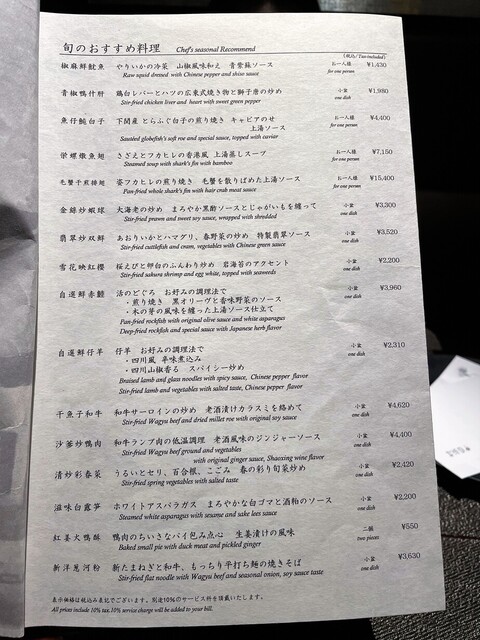 旬のおすすめ料理 Chef's seasonal Recommend
(税込/Tax included)
椒麻鮮魷魚 やりいかの冷菜 山椒風味和え 青紫蘇ソース お一人様 ¥1,430
Raw squid dressed with Chinese pepper and shiso sauce for one person
青椒鴨什肝 鶏白レバーとハツの広東式焼き物と獅子唐の炒め 小盆 ¥1,980
Stir-fried chicken liver and heart with sweet green pepper one dish
魚仔鮑白子 下関産 とらふぐ白子の煎り焼き キャビアのせ お一人様 ¥4,400
上湯ソース for one person
Sautéed globefish's soft roe and special sauce, topped with caviar
栄螺燉魚翅 さざえとフカヒレの香港風 上湯蒸しスープ お一人様 ¥7,150
Steamed soup with shark's fin with bamboo for one person
毛蟹干煎排翅 姿フカヒレの煎り焼き 毛蟹を散りばめた上湯ソース お一人様 ¥15,400
Pan-fried whole shark's fin with hair crab meat sauce for one person
金絲炒蝦球 大海老の炒め まろやか黒酢ソースとじゃがいもを纏って 小盆 ¥3,300
Stir-fried prawn and sweet soy sauce, wrapped with shredded one dish
翡翠炒双鮮 あおりいかとハマグリ、春野菜の炒め 特製翡翠ソース 小盆 ¥3,520
Stir-fried cuttlefish and cram, vegetables with Chinese green sauce one dish
雪花映紅櫻 桜えびと卵白のふんわり炒め 岩海苔のアクセント 小盆 ¥2,200
Stir-fried sakura shrimp and egg white, topped with seaweeds one dish
自選鮮赤鯥 活のどぐろ お好みの調理法で 小盆 ¥3,960
・煎り焼き 黒オリーヴと香味野菜のソース one dish
・木の芽の風味を纏った上湯ソース仕立て
Pan-fried rockfish with original olive sauce and white asparagus
Deep-fried rockfish and special sauce with Japanese herb flavor
自選鮮仔羊 仔羊 お好みの調理法で 小盆 ¥2,310
・四川風 辛味煮込み one dish
・四川山椒香る スパイシー炒め
Braised lamb and glass noodles with spicy sauce, Chinese pepper flavor
Stir-fried lamb and vegetables with salted taste, Chinese pepper flavor
干魚子和牛 和牛サーロインの炒め 老酒漬けカラスミを絡めて 小盆 ¥4,620
Stir-fried Wagyu beef and dried millet roe with original soy sauce one dish
沙爹炒鴨肉 和牛ランプ肉の低温調理 老酒風味のジンジャーソース 小盆 ¥4,400
Stir-fried Wagyu beef ground and vegetables one dish
with original ginger sauce, Shaoxing wine flavor
清炒彩春菜 うるいとセリ、百合根、こごみ 春の彩り旬菜炒め 小盆 ¥2,420
Stir-fried spring vegetables with salted taste one dish
滋味白露笋 ホワイトアスパラガス まろやかな白ゴマと酒粕のソース 小盆 ¥2,200
Steamed white asparagus with sesame and sake lees sauce one dish
紅姜火鴨酥 鴨肉のちいさなパイ包み点心 生姜漬けの風味 二個 ¥550
Baked small pie with duck meat and pickled ginger two pieces
新洋葱河粉 新たまねぎと和牛、もっちり平打ち麺の焼きそば 小盆 ¥3,630
Stir-fried flat noodle with Wagyu beef and seasonal onion, soy sauce taste one dish
表示価格は税込み表記でございます。別途10%のサービス料を頂戴いたします。
All prices include 10% tax. 10% service charge will be added to your bill.